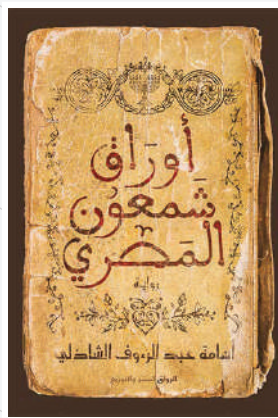 أورَاق
شَمعُون
المَصري
رواية
أسامة عبد الرءوف الشاذلي
الرواق للنشر والتوزيع